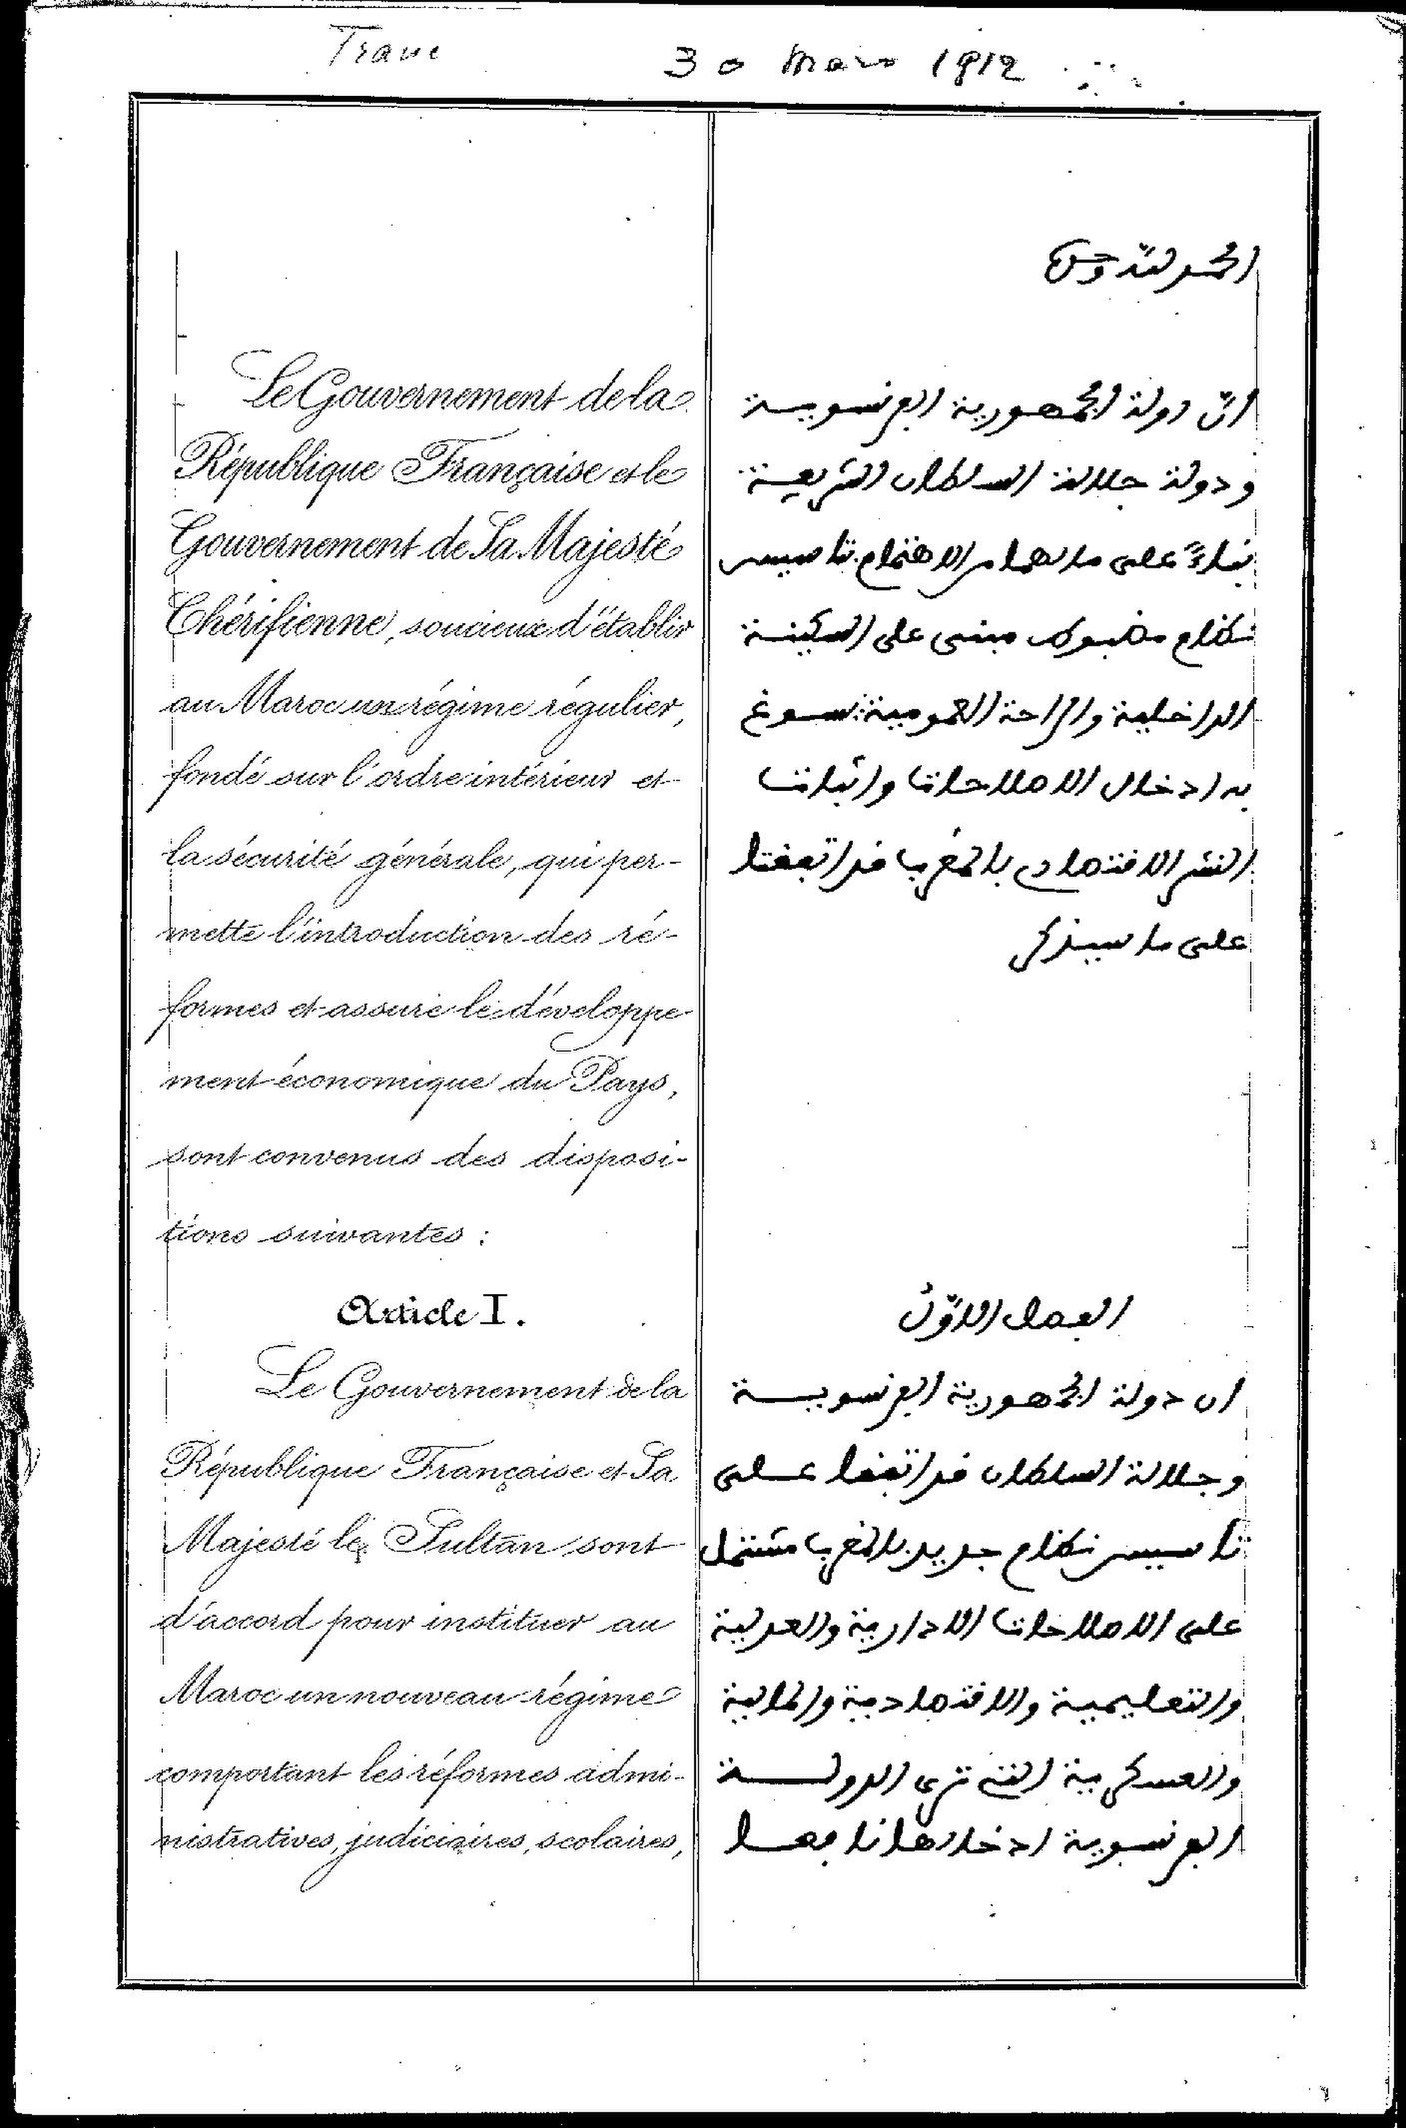 30 Mars 1912
Le Gouvernement de la
République Française et le
Gouvernement de Sa Majesté
Chérifienne, soucieux d'établir
au Maroc un régime régulier,
fondé sur l'ordre intérieur et
la sécurité générale, qui per-
mette l'introduction des ré-
formes et assure le développe-
ment économique du Pays,
sont convenus des disposi-
tions suivantes :
Article I.
Le Gouvernement de la
République Française et Sa
Majesté le Sultan sont
d'accord pour instituer au
Maroc un nouveau régime
comportant les réformes admi-
nistratives, judiciaires, scolaires,
الحمد لله وحده
انّ دولة الجمهورية الفرنسوية
ودولة جلالة السلطان الشريفة
بناءً على ما لهما من الاهتمام بتاسيس
نظام مضبوط مبنى على السكينة
الداخلية والراحة العمومية يسوغ
به ادخال الاصلاحات واثبات
النشر الاقتصادى بالمغرب قد اتفقتا
على ما سيذكر
الفصل الاوّل
ان دولة الجمهورية الفرنسوية
وجلالة السلطان قد اتفقا على
تأسيس نظام جديد بالمغرب مشتمل
على الاصلاحات الادارية والعدلية
والتعليمية والاقتصادية والمالية
والعسكرية التى ترى الدولة
الفرنسوية ادخالها نافعا